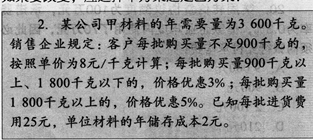 2. 某公司甲材料的年需要量为3 600千克。
销售企业规定：客户每批购买量不足900千克的，
按照单价为8元/千克计算；每批购买量900千克以
上、1 800千克以下的，价格优惠3%；每批购买量
1 800千克以上的，价格优惠5%。已知每批进货费
用25元，单位材料的年储存成本2元。